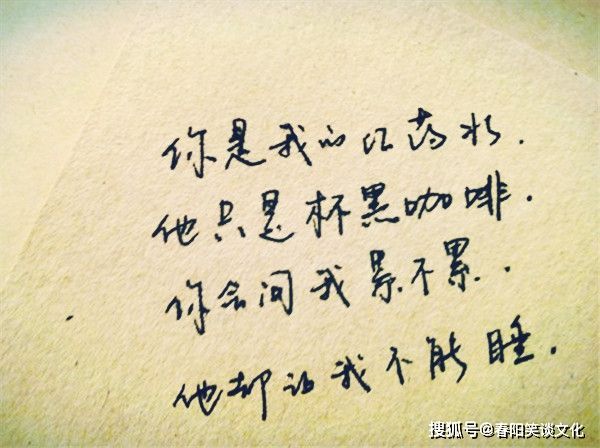 你是我的红药水.
他只是杯黑咖啡.
你会问我累不累.
他却让我不能睡.
搜狐号@春阳笑谈文化